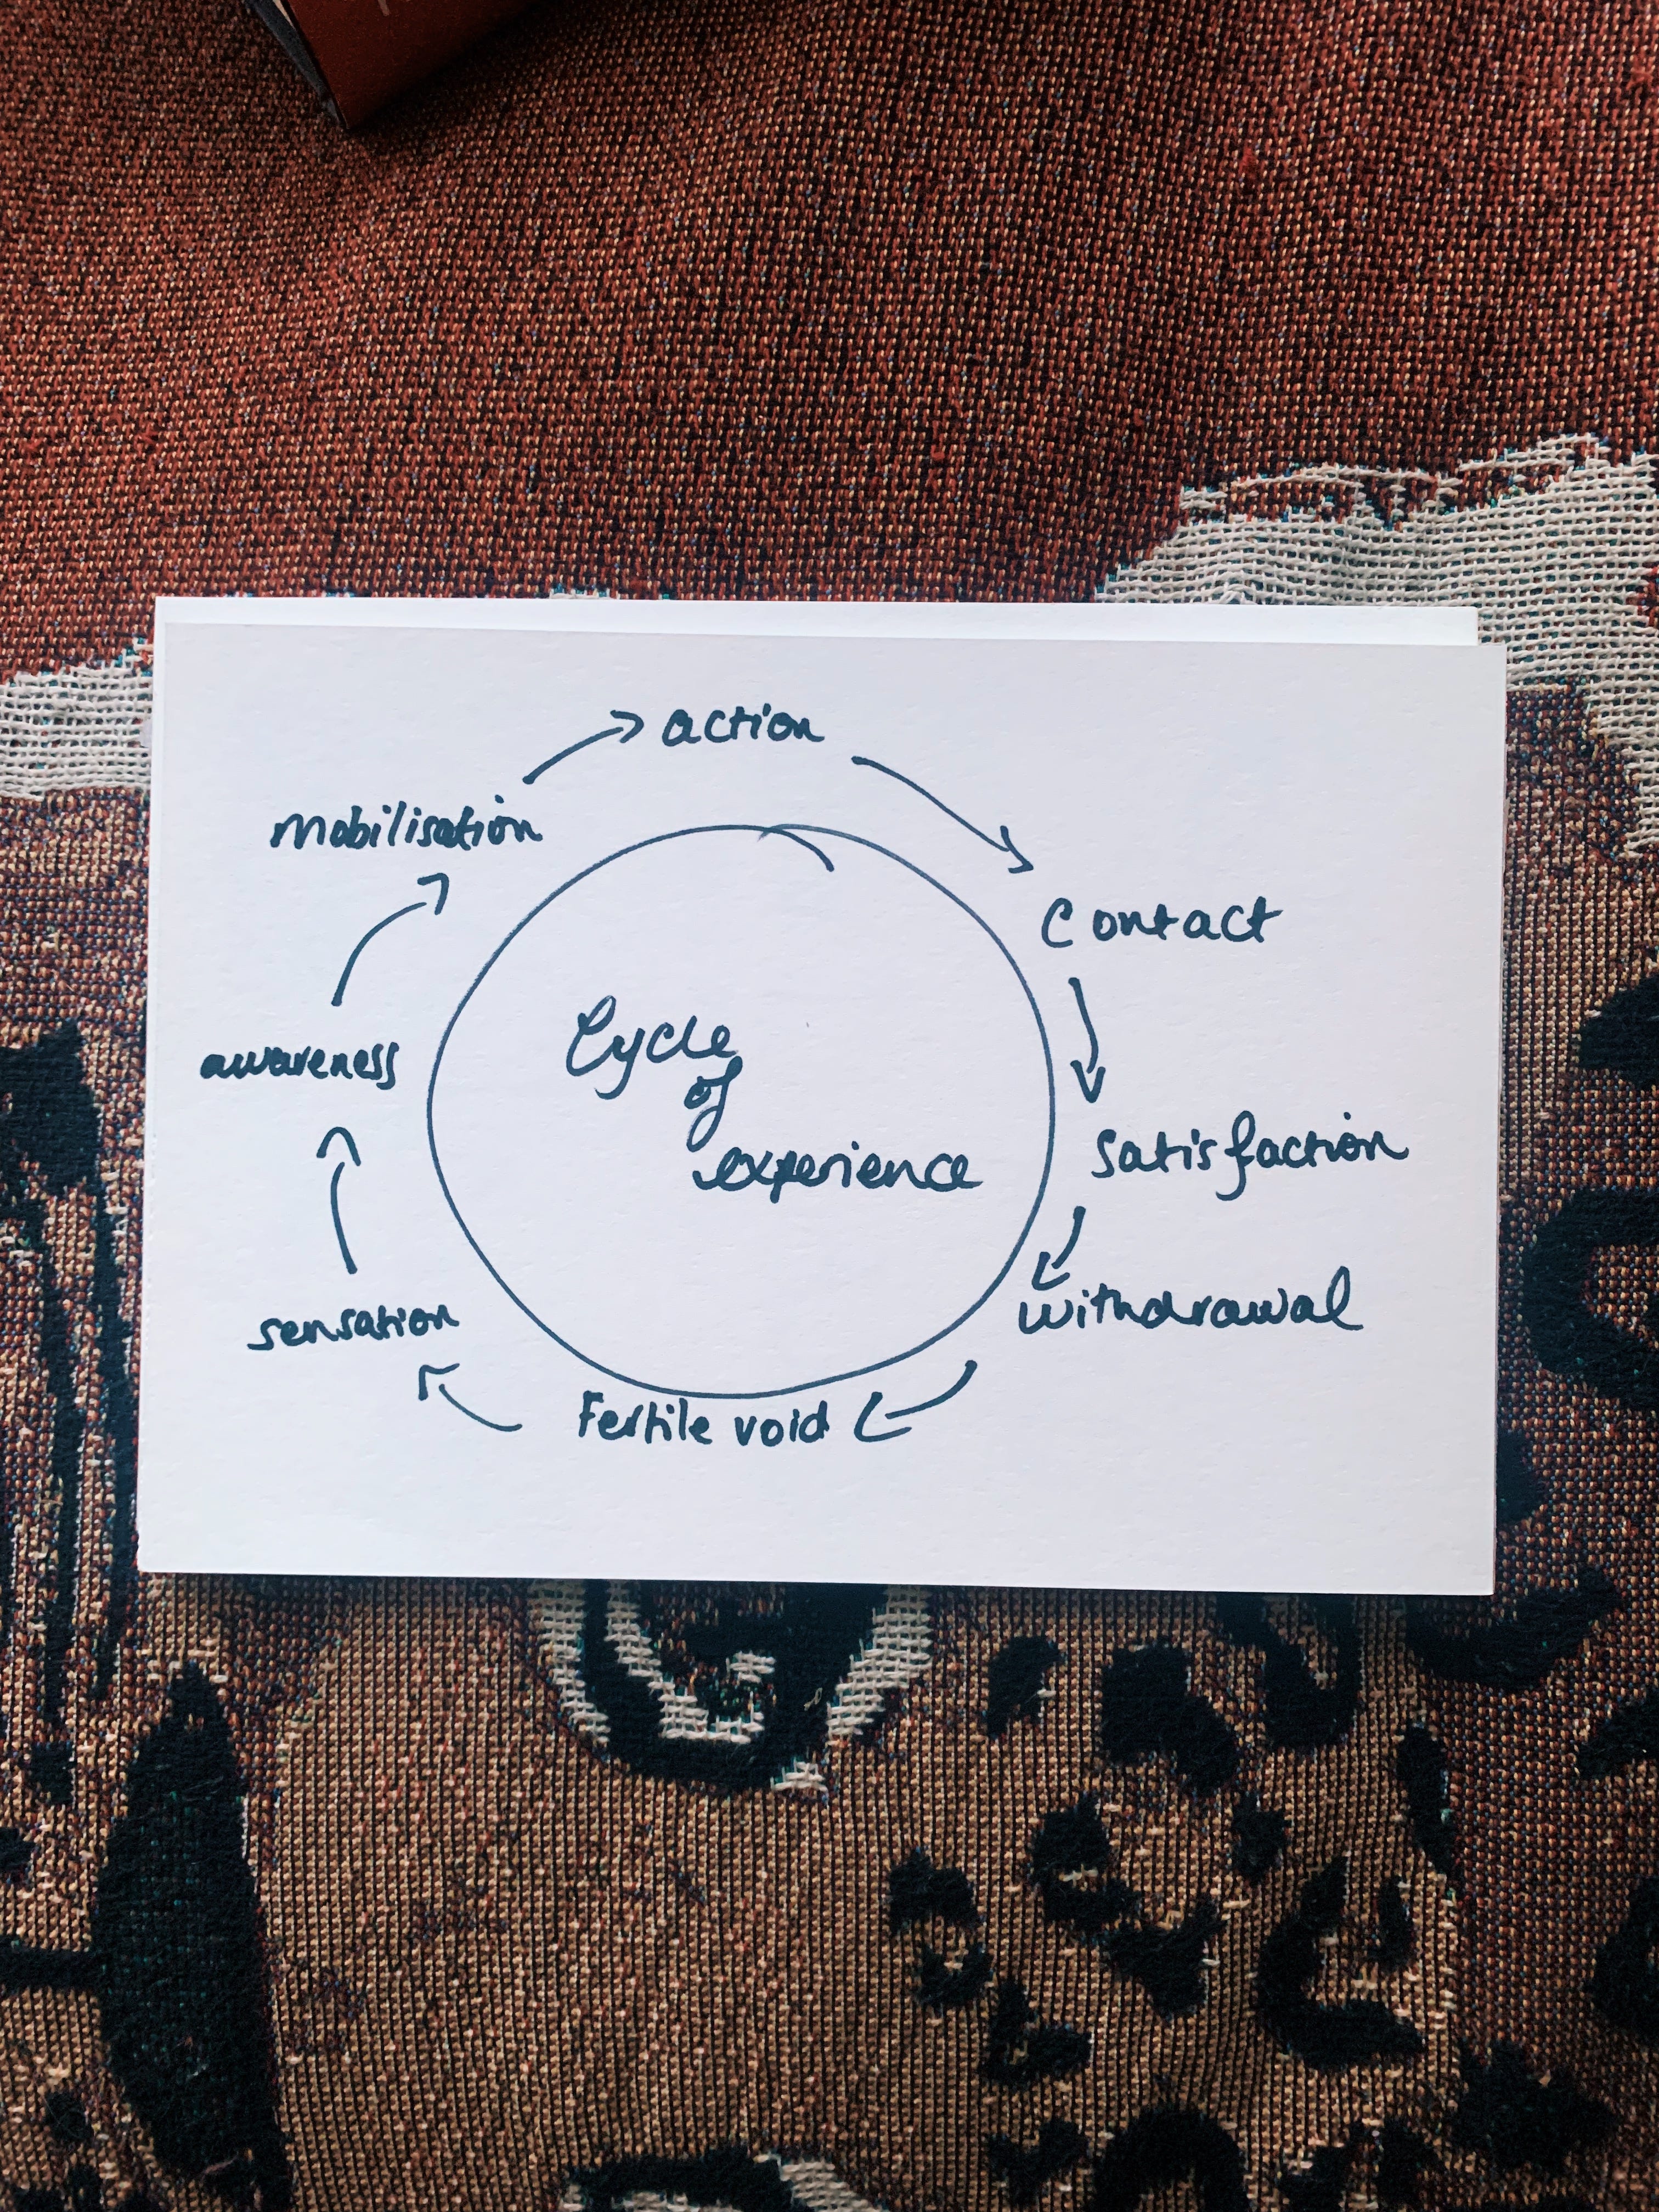 action
mobilisation
contact
Cycle
of
experience
awareness
satisfaction
sensation
withdrawal
Fertile void